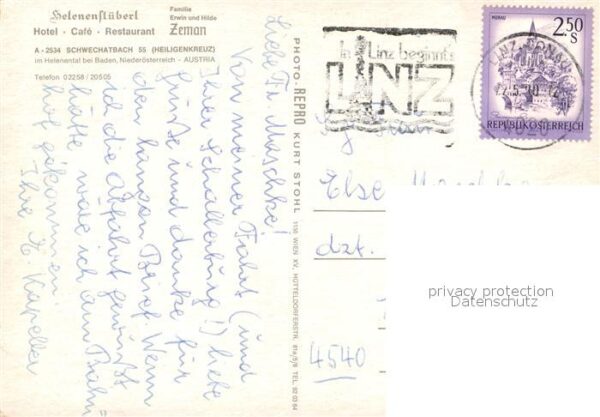 Helenenstüberl
Hotel · Café · Restaurant
Familie
Erwin und Hilde
Zeman
A - 2534 SCHWECHATBACH 55 (HEILIGENKREUZ)
im Helenental bei Baden, Niederösterreich - AUSTRIA
Telefon 02258 / 20505
Liebe Fr. Maschke!
Von meiner Fahrt (und
ihrer Schallerburg!) liebe
Grüße und danke für
den Brief. Wenn
ich die Abfahrt gewußt
hätte, wäre ich am Bahn=
hof gekommen.
Ihre Kapeller
PHOTO-REPRO KURT STOHL
1150 WIEN XV, HÜTTELDORFERSTR.
In Linz beginnt's
LINZ
LINZ-DONAU
MURAU
2.50
S
REPUBLIK ÖSTERREICH
Else
dzt.
4540
privacy protection
Datenschutz